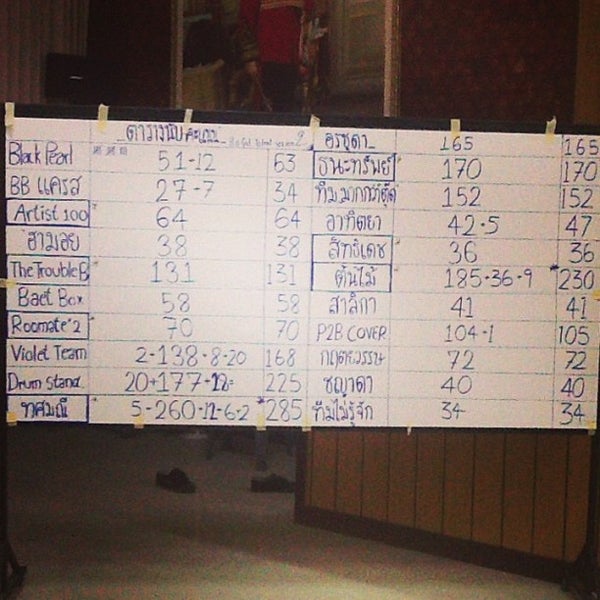 ตารางนับคะแนน
Black Pearl 51-12 63
BB แครส 27-7 34
Artist 100 64 64
ฮามอย 38 38
The Trouble B 131 131
Baet Box 58 58
Roomate'2 70 70
Violet Team 2-138-8-20 168
Drum Stand 20+177-12- 225
ทศมณี 5-260-12-6-2 285
อรชุดา 165 165
ธนะทรัพย์ 170 170
152 152
อาทิตยา 42-5 47
สิทธิเดช 36 36
ต้นไม้ 185-36-9 230
สาลิกา 41 41
P2B COVER 104-1 105
72 72
ชญาดา 40 40
ทีมไม่รู้จัก 34 34